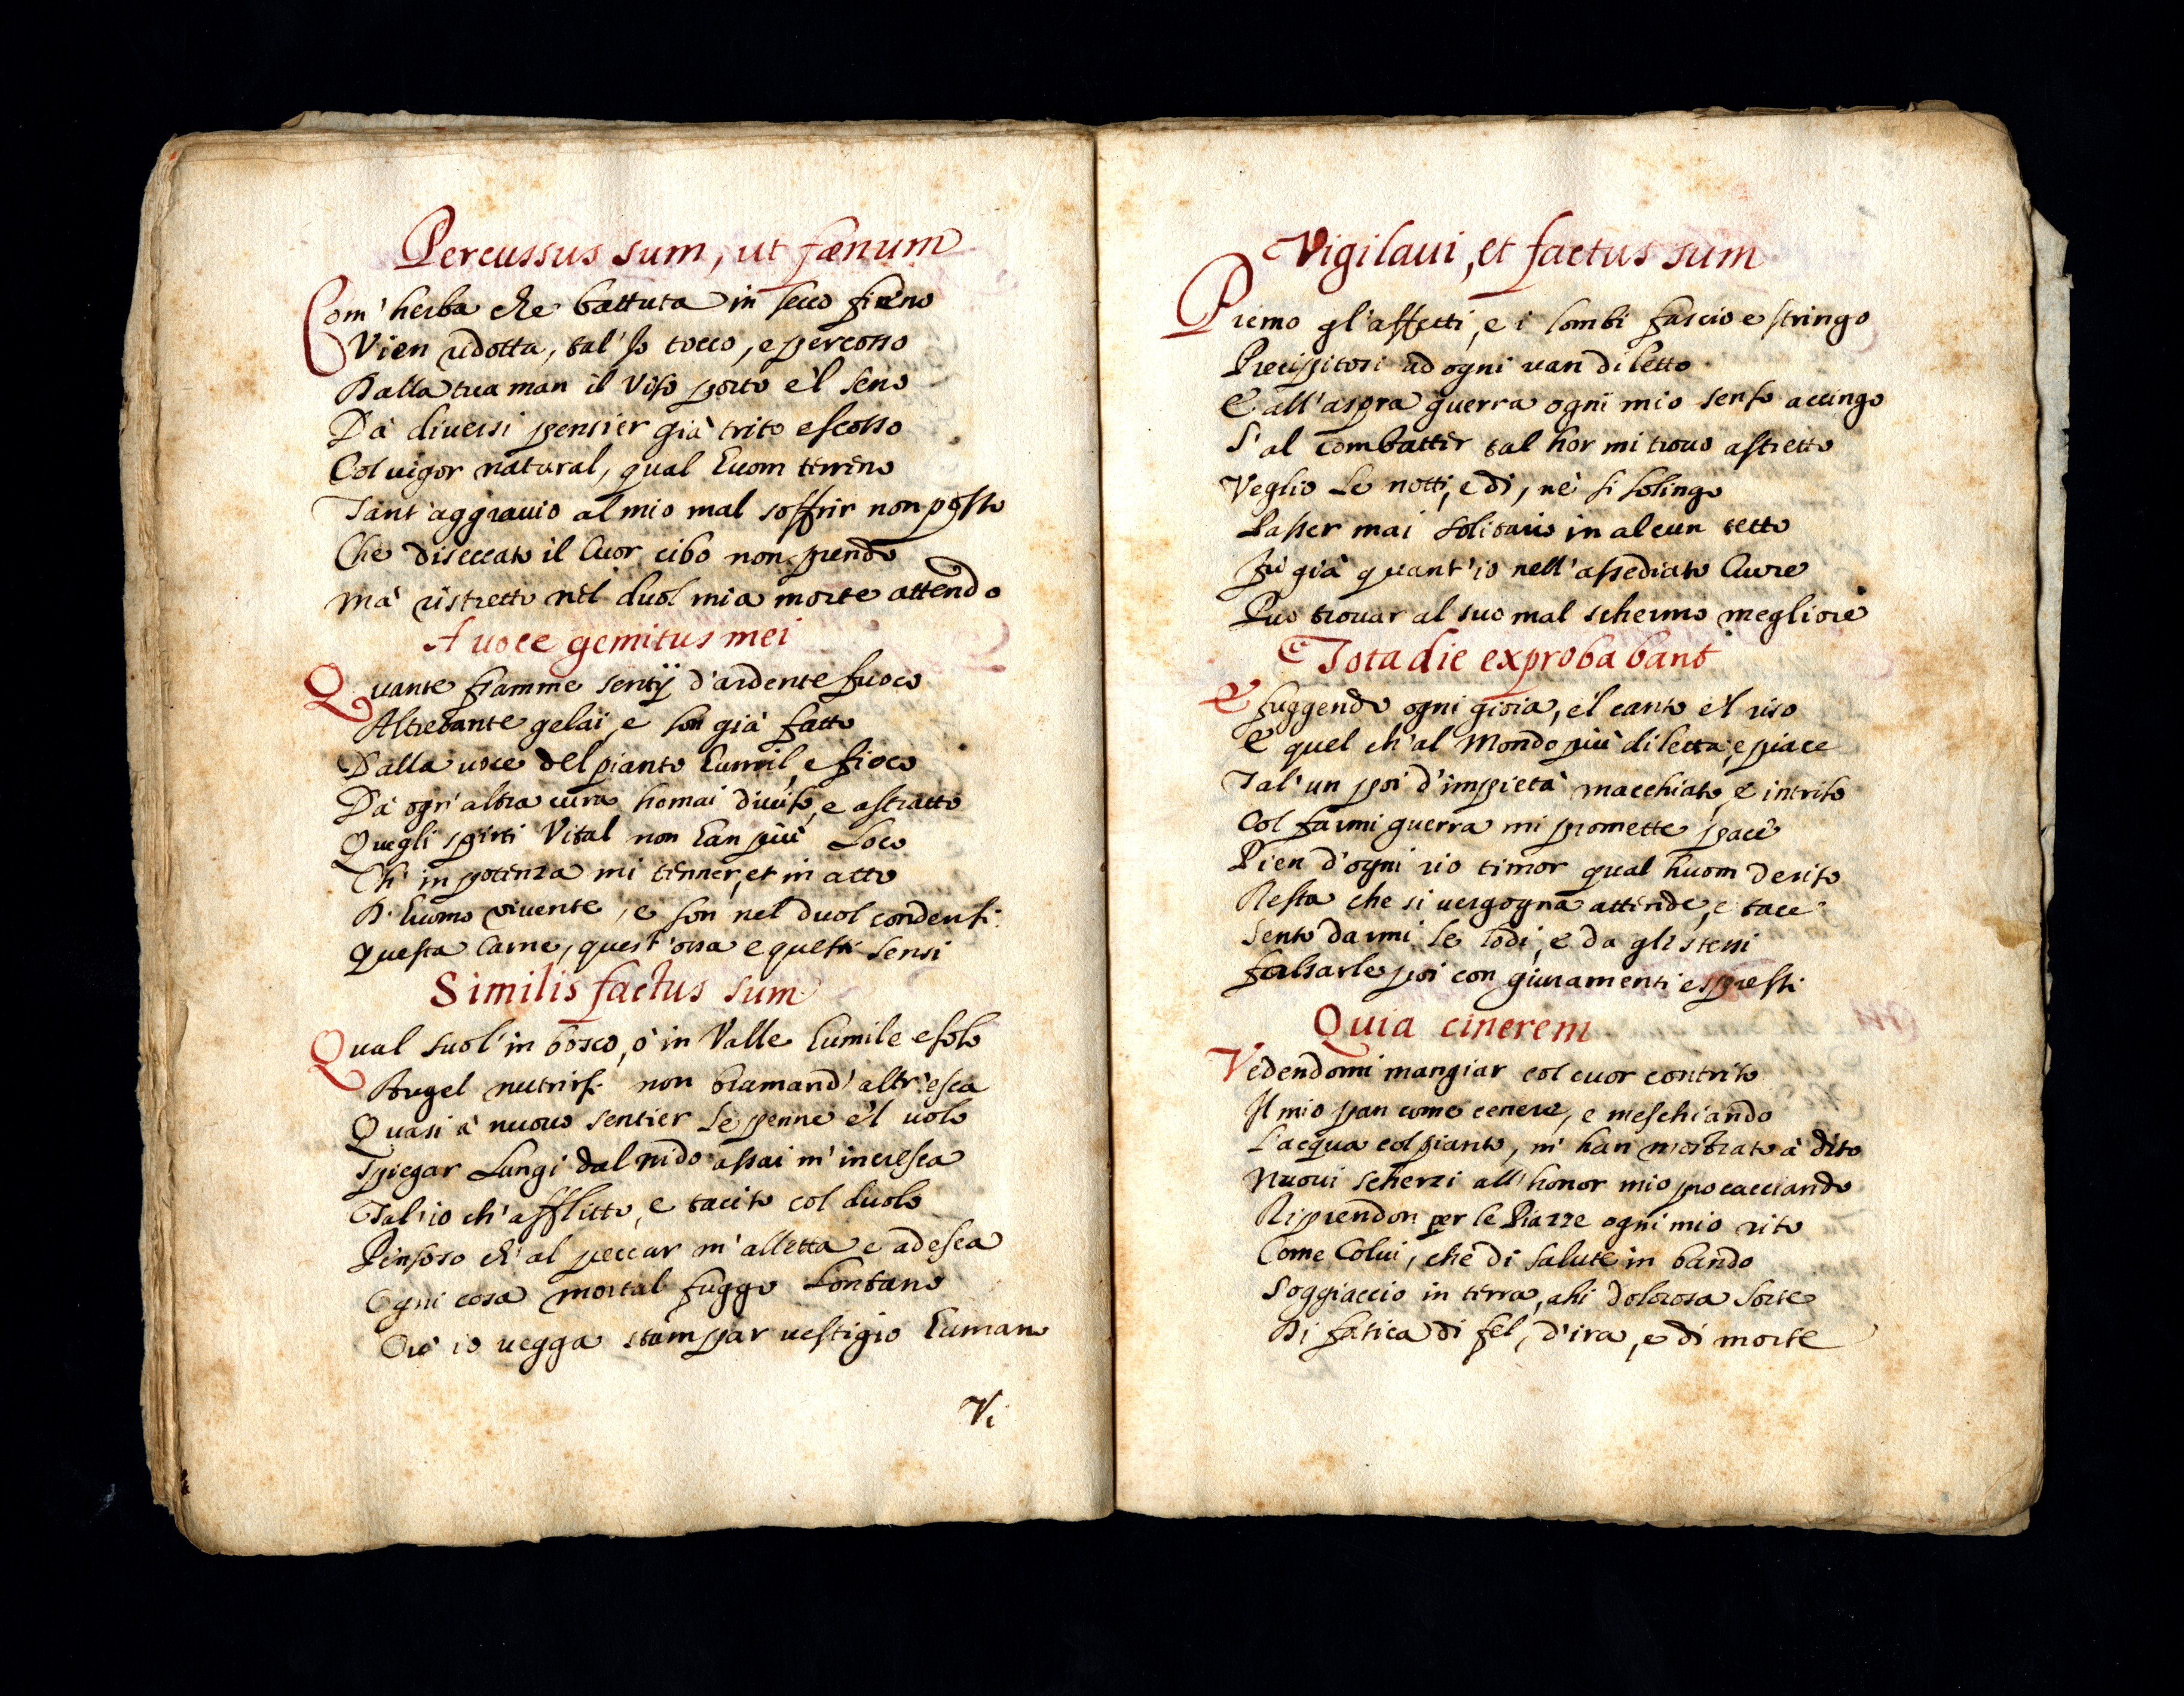 Percussus sum, ut fænum
Com' herba che battuta in secco fieno
Vien ridotta, tal' Io tocco, e percosso
Dalla tua man il Viso porto e'l seno
Da diversi pensier già trito e scosso
Col vigor natural, qual huom terreno
Tant' aggravio al mio mal soffrir non posso
Che diseccato il Cuor cibo non prendo
Mà ristretto nel duol mia morte attendo
A voce gemitus mei
Quante fiamme sentij d'ardente fuoco
Altretante gelai, e son già fatto
Dalla voce del pianto humil, e fioco
Dà ogn' altra cura homai diviso, e astratto
Quegli spirti Vital non han più Loco
Ch' in potenza mi tenner, et in atto
D' huomo vivente, e son nel duol condensi
Questa Carne, quest' ossa e questi sensi
Similis factus sum
Qual suol' in bosco, ò in Valle humile e solo
Augel nutrirsi non bramand' altr' esca
Quasi à nuovo sentier le penne e'l volo
Spiegar Lungi dal nido assai m' incresca
Tal' io ch' afflitto, e tacito col duolo
Pensoso ch' al peccar m' alletta e adesca
Ogni cosa mortal fuggo Lontano
Ove io vegga stampar vestigio humano
Vi
Vigilaui, et factus sum
Premo gl' affetti, e i lombi fascio e stringo
Precipitosi ad ogni van diletto
E all' aspra guerra ogni mio senso accingo
S' al combatter tal hor mi trovo astretto
Veglio le notti, e dì, nè sì solingo
Passer mai solitario in alcun tetto
Fù già quant' io nell' assediato Cuore
Può trovar al suo mal schermo megliore
Tota die exprobabant
E fuggendo ogni gioia, e'l canto e'l riso
E quel ch' al Mondo più diletta, e piace
Tal' un poi d' impietà macchiato, e intriso
Col farmi guerra mi promette pace
Pien d' ogni rio timor qual huom deriso
Resta che si vergogna attende, e tace
Sento darmi le lodi, e da gli stessi
Falsarle poi con giuramenti espressi
Quia cinerem
Vedendomi mangiar col cuor contrito
Il mio pan come cenere, e meschiando
L' acqua col pianto, m' han mostrato à dito
Nuovi scherzi all' honor mio procacciando
Riprendon per le Piazze ogni mio rito
Come Colui, che di salute in bando
Soggiaccio in terra, ahi dolorosa Sorte
Di fatica di fel, d' ira, e di morte